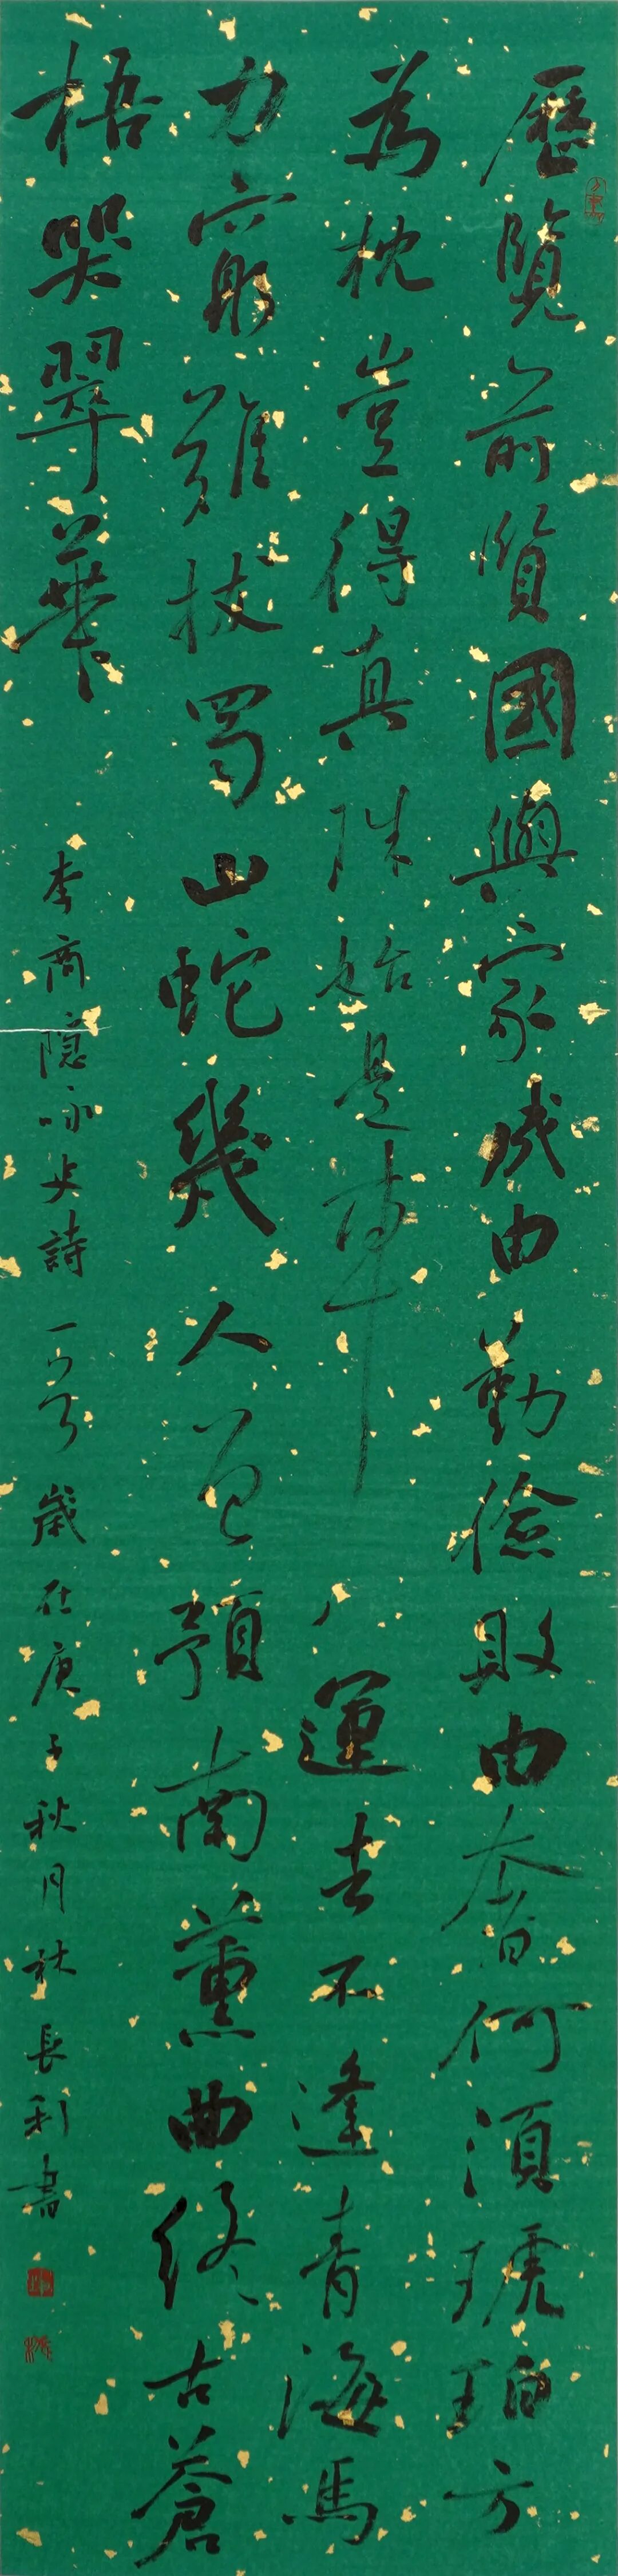 歷覽前賢國與家成由勤儉敗由奢何須琥珀方
為枕豈得真珠始是車運去不逢青海馬
力窮難拔蜀山蛇幾人曾預南薰曲終古蒼
梧哭翠華 李商隱咏史詩一首 歲在庚子秋月 長利書